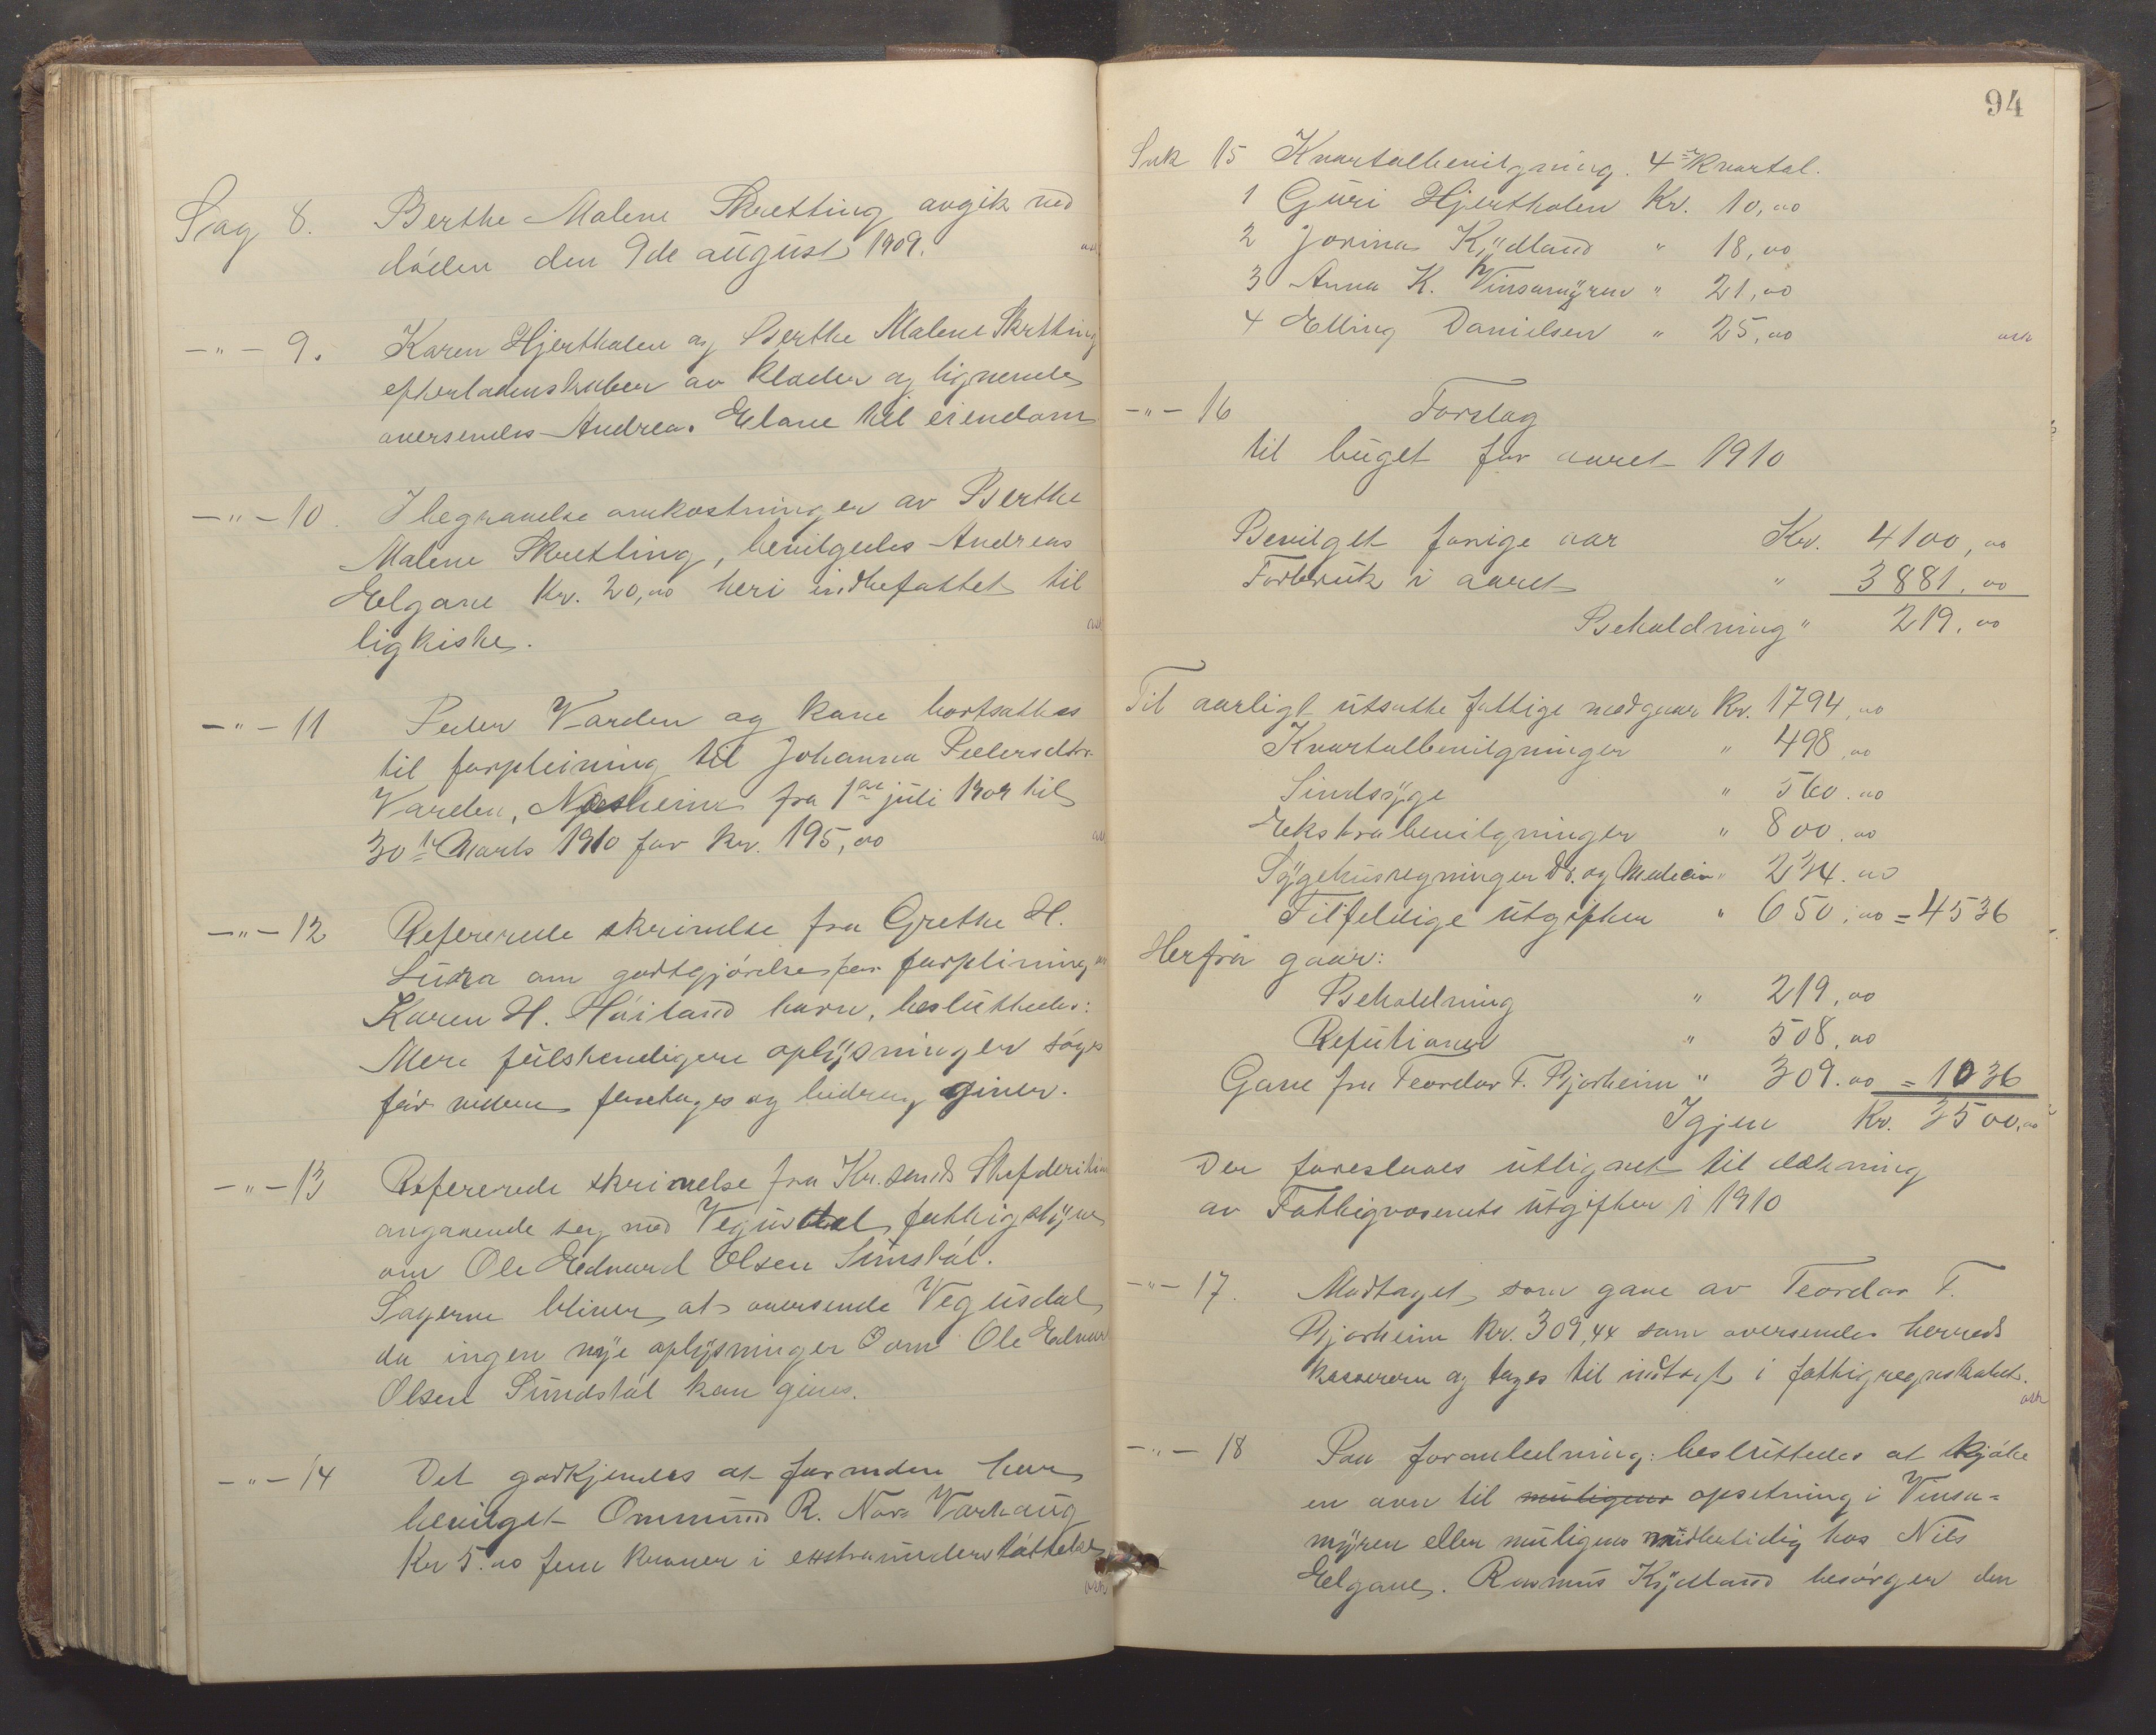 Sag 8. Berthe Malene Skretting avgik ved
döden den 9de august 1909.
—„— 9. Karen Hjerthalen og Berthe Malene Skretting
efterladenskaber av klæder og lignende
oversendes Andreas Elgane til eiendom
—„— 10. I begravelse omkostninger av Berthe
Malene Skretting, bevilgedes Andreas
Elgane Kr. 20,00 heri indbefattet til
ligkiste.
—„— 11 Peder Varden og kone bortsættes
til forpleining til Johanna Pedersdtr.
Varden, Næsheim fra 1ste juli 1909 til
30te Marts 1910 for kr. 195,00
—„— 12 Refererede skrivelse fra Grethe H.
Lura om godtgjörelse for forpleining av
Karen H. Höiland barn, besluttedes:
Mere fulstendigere oplysninger söges
för videre foretages og bidrag giver.
—„— 13 Refererede skrivelse fra Kr.sands Stifsdirektion
angaaende sag med Vegusdal fattigstyre
om Ole Edvard Olsen Sundstöl.
Sagerne bliver at oversende Vegusdal
da ingen nye oplysninger om Ole Edvard
Olsen Sundstöl kan gives.
—„— 14 Det godkjendes at formden have
bevilget Ommund R. Nor= Varhaug
Kr 5.00 fem kroner i exstraunderstöttelse
94
Sak 15 Kvartalbevilgning. 4de Kvartal.
1 Guri Hjerthalen Kr. 10,00
2 Jorina Kydland „ 18,00
3 Anna K. Vinsamyren „ 21,00
4 Elling Danielsen „ 25,00
—„— 16 Forslag
til buget for aaret 1910
Bevilget forrige aar Kr. 4100,00
Forbruk i aaret „ 3881,00
Beholdning „ 219,00
Til aarligt utsatte fattige medgaar Kr. 1794,00
Kvartalbevilgninger „ 498,00
Sindsyge „ 560.00
Ekstrabevilgninger „ 800.00
Sygehusregninger Dr. og Medecin „ 234.00
Tilfeldige utgifter „ 650,00 = 4536
Herfra gaar:
Beholdning „ 219,00
Refutioner „ 508,00
Gave fra Teordor T. Bjorheim „ 309.00 = 1036
Igjen Kr. 3500,00
Der foreslaaes utlignet til dækning
av Fattigvæsenets utgifter i 1910
—„— 17. Modtaget som gave av Teordor T.
Bjorheim Kr. 309,44 som oversendes herreds
kasseren og tages til indtægt i fattigregnskabet.
—„— 18 Paa foranledning: besluttedes at kjöbe
en ovn til muligens opsetning i Vinsa=
myren eller muligens midlertidig hos Nils
Elgane. Rasmus Kydland besörger den